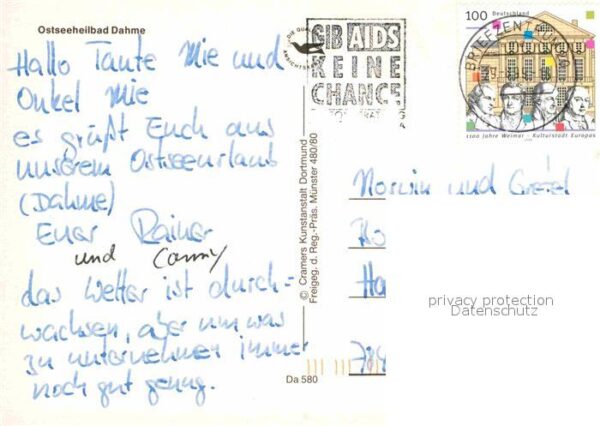 Ostseeheilbad Dahme
Hallo Tante Mie und
Onkel Mie
es grüßt Euch aus
unserem Ostseeurlaub
(Dahme)
Euer Rainer
und Conny
das Wetter ist durch-
wachsen, aber um was
zu unternehmen immer
noch gut genug.
Da 580
© Cramers Kunstanstalt Dortmund
Freigeg. d. Reg.-Präs. Münster 480/80
GIB AIDS
KEINE
CHANCE
100 Deutschland
BRIEFZENTRUM
1100 Jahre Weimar Kulturstadt Europas
und
Ha
privacy protection
Datenschutz